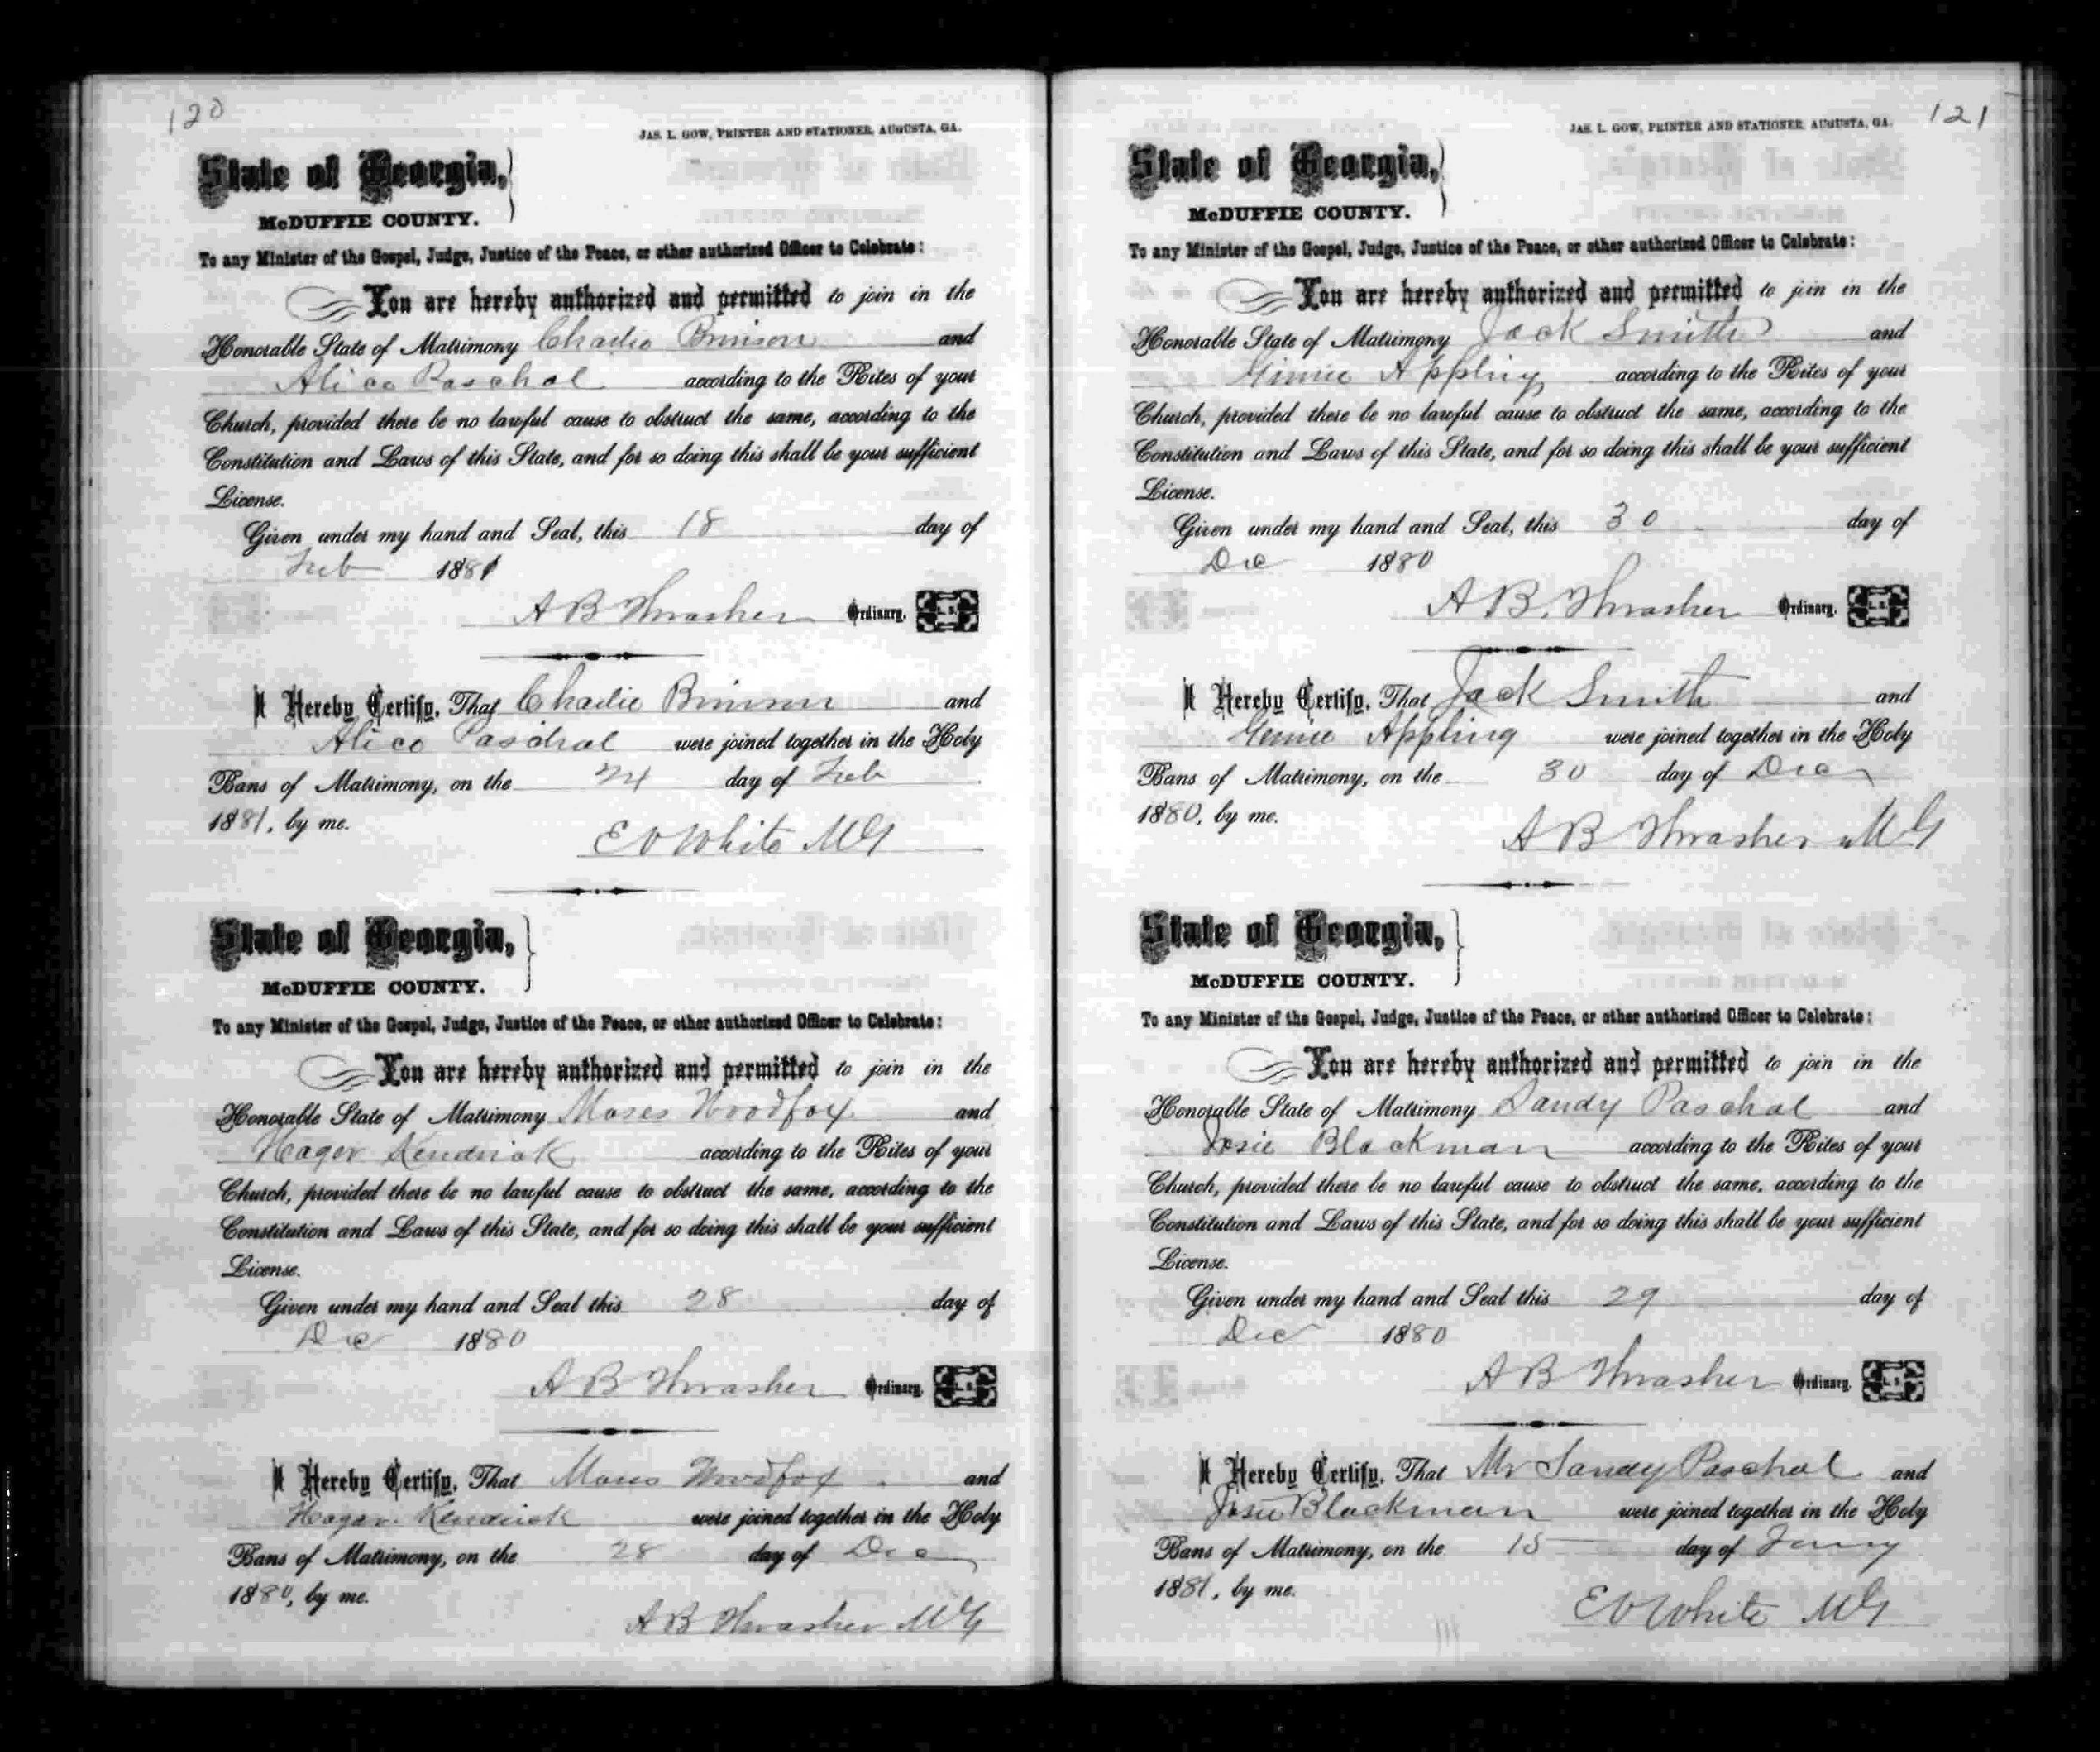 120
JAS. L. GOW, PRINTER AND STATIONER, AUGUSTA, GA.
State of Georgia,
McDUFFIE COUNTY.
To any Minister of the Gospel, Judge, Justice of the Peace, or other authorized Officer to Celebrate:
You are hereby authorized and permitted to join in the
Honorable State of Matrimony Charlie Brinson and
Alice Paschal according to the Rites of your
Church, provided there be no lawful cause to obstruct the same, according to the
Constitution and Laws of this State, and for so doing this shall be your sufficient
License.
Given under my hand and Seal, this 18 day of
Feb 1881
A B Thrasher Ordinary. L.S.
I Hereby Certify, That Charlie Brinson and
Alice Paschal were joined together in the Holy
Bans of Matrimony, on the 24 day of Feb
1881, by me.
E V White MG
State of Georgia,
McDUFFIE COUNTY.
To any Minister of the Gospel, Judge, Justice of the Peace, or other authorized Officer to Celebrate:
You are hereby authorized and permitted to join in the
Honorable State of Matrimony Moses Woodfox and
Hager Kendrick according to the Rites of your
Church, provided there be no lawful cause to obstruct the same, according to the
Constitution and Laws of this State, and for so doing this shall be your sufficient
License.
Given under my hand and Seal this 28 day of
Dec 1880
A B Thrasher Ordinary. L.S.
I Hereby Certify, That Moses Woodfox and
Hagar Kendrick were joined together in the Holy
Bans of Matrimony, on the 28 day of Dec
1880, by me.
A B Thrasher MG
121
JAS. L. GOW, PRINTER AND STATIONER, AUGUSTA, GA.
State of Georgia,
McDUFFIE COUNTY.
To any Minister of the Gospel, Judge, Justice of the Peace, or other authorized Officer to Celebrate:
You are hereby authorized and permitted to join in the
Honorable State of Matrimony Jack Smith and
Ginnie Appling according to the Rites of your
Church, provided there be no lawful cause to obstruct the same, according to the
Constitution and Laws of this State, and for so doing this shall be your sufficient
License.
Given under my hand and Seal, this 30 day of
Dec 1880
A B. Thrasher Ordinary. L.S.
I Hereby Certify, That Jack Smith and
Ginnie Appling were joined together in the Holy
Bans of Matrimony, on the 30 day of Dec
1880, by me.
A B Thrasher MG
State of Georgia,
McDUFFIE COUNTY.
To any Minister of the Gospel, Judge, Justice of the Peace, or other authorized Officer to Celebrate:
You are hereby authorized and permitted to join in the
Honorable State of Matrimony Sandy Paschal and
Josie Blackman according to the Rites of your
Church, provided there be no lawful cause to obstruct the same, according to the
Constitution and Laws of this State, and for so doing this shall be your sufficient
License.
Given under my hand and Seal this 29 day of
Dec 1880
A B Thrasher Ordinary. L.S.
I Hereby Certify, That Mr Sandy Paschal and
Josie Blackman were joined together in the Holy
Bans of Matrimony, on the 15 day of Jany
1881, by me.
E V White MG